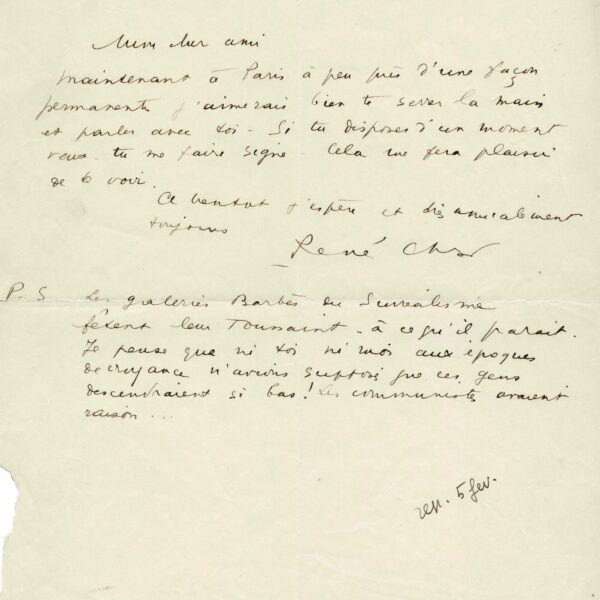 Mon cher ami
maintenant à Paris à peu près d'une façon
permanente j'aimerais bien te serrer la main
et parler avec toi - Si tu disposes d'un moment
veux-tu me faire signe - Cela me fera plaisir
de te voir.
A bientôt j'espère et très amicalement
toujours
René Char
P. S Les galeries Barbès du Surréalisme
fêtent leur Toussaint - à ce qu'il parait.
Je pense que ni toi ni moi aux époques
de croyance n'avions supposé que ces gens
descendraient si bas ! Les communistes avaient
raison ...
rep. 5 fev.